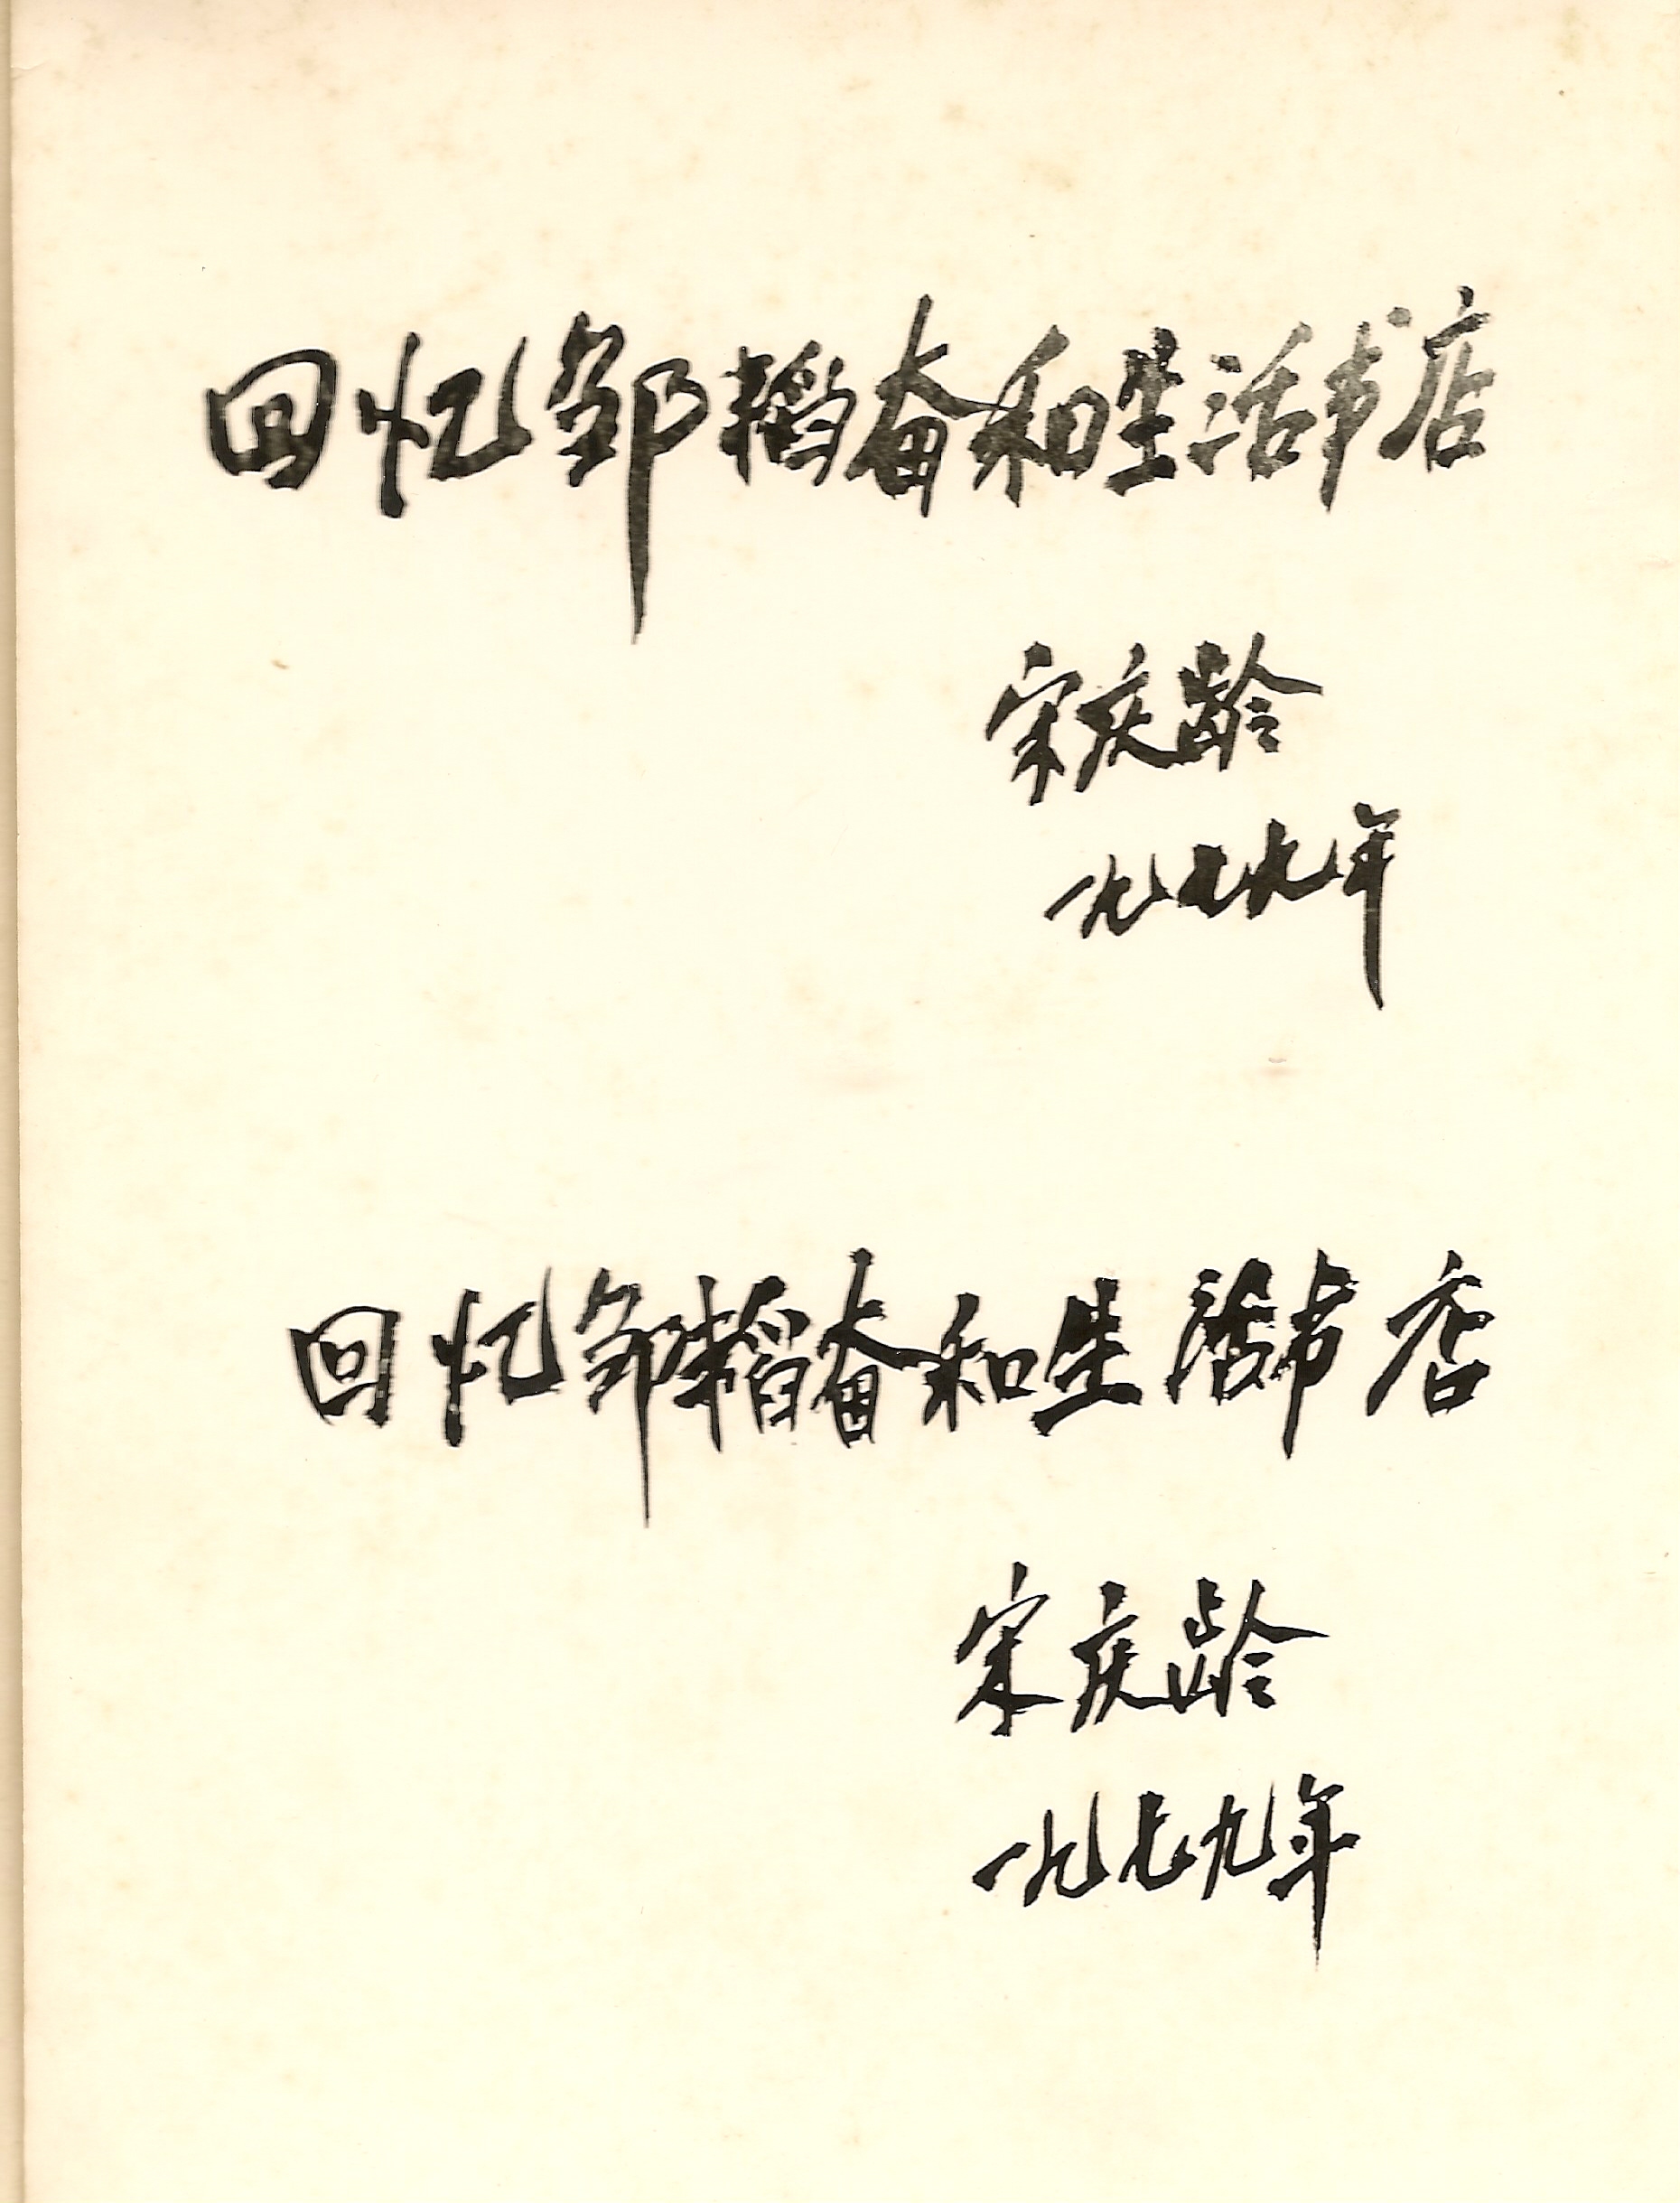 回忆邹韬奋和生活书店
宋庆龄
一九七九年
回忆邹韬奋和生活书店
宋庆龄
一九七九年